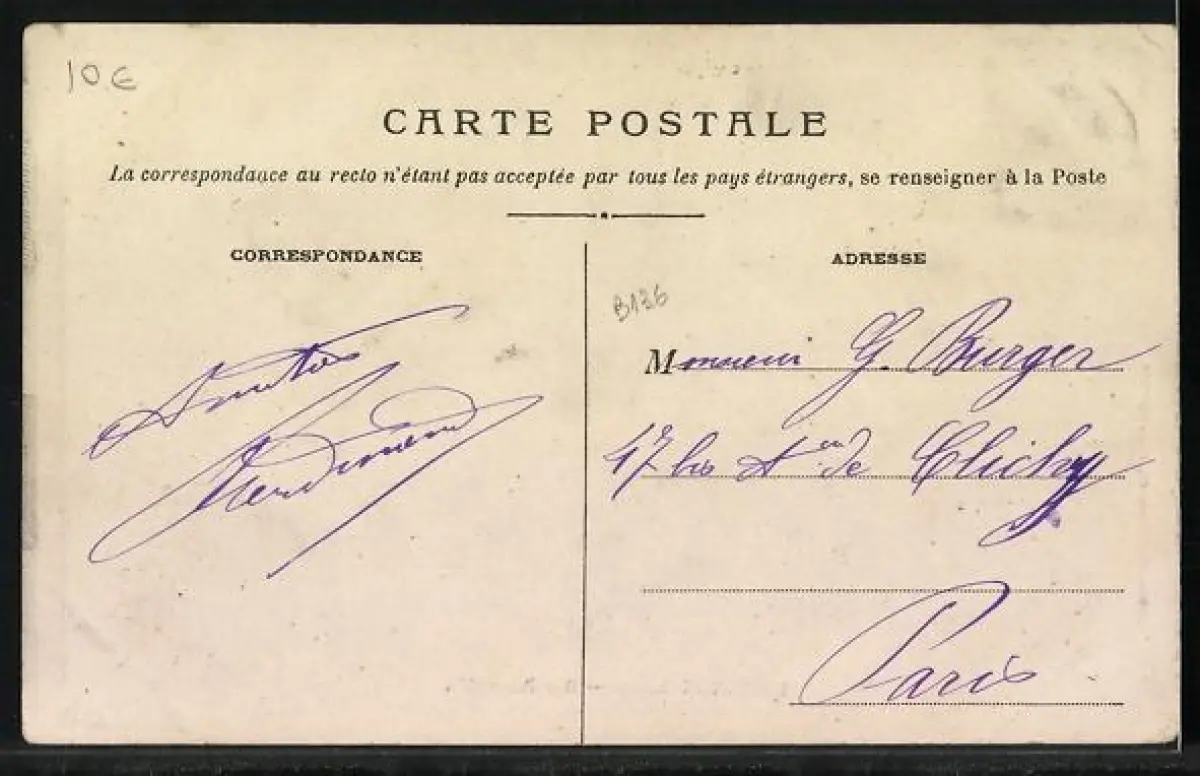 10 €
CARTE POSTALE
La correspondance au recto n'étant pas acceptée par tous les pays étrangers, se renseigner à la Poste
CORRESPONDANCE
Amitiés
ADRESSE
B136
Monsieur G. Burger
47 bis Aen de Clichy
Paris